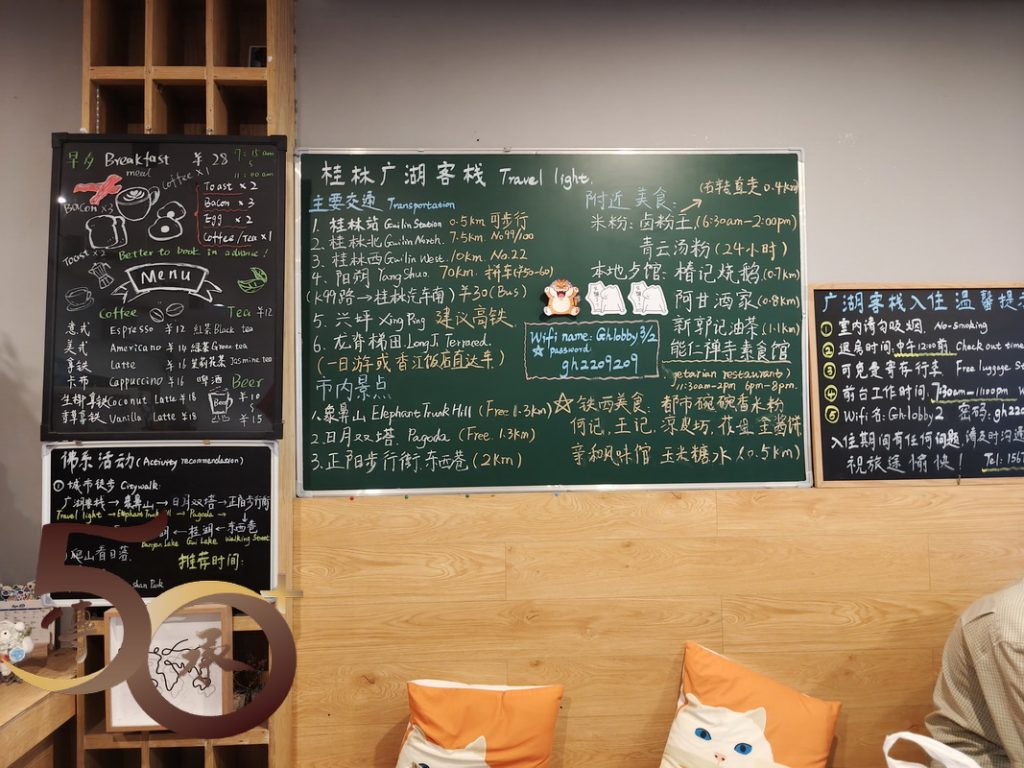 早夕 Breakfast ¥28 7:15am
meal 11:00am
Coffee×1
Bacon×3
Toast×2
Toast ×2
Bacon ×3
Egg ×2
Coffee/Tea ×1
Better to book in advance!
Menu
Coffee Tea ¥12
意式 Espresso ¥12 红茶Black tea
美式 Americano ¥14 绿茶Green tea
拿铁 Latte ¥16 茉莉花茶 Jasmine tea
卡布 Cappuccino ¥16 啤酒 Beer
生椰拿铁Coconut Latte ¥18 ¥10
香草拿铁 Vanilla Latte ¥18 ¥15
佛系活动(Activity recommendation)
① 城市徒步 Citywalk:
广湖客栈→象鼻山→日月双塔→正阳步行街
Travel light Elephant Trunk Hill Pagoda Walking Street
←桂湖←东西巷
Banyan Lake Gui Lake
爬山看日落
推荐时间:
shan Park
50
承
桂林广湖客栈 Travel light.
主要交通 Transportation
1. 桂林站 Guilin Station 0.5km 可步行
2. 桂林北 Guilin North. 7.5km. No99/100
3. 桂林西 Guilin West. 10km. No.22
4. 阳朔 Yang Shuo. 70km. 拼车(¥50-60)
(K99路→桂林汽车南) ¥30(Bus)
5. 兴坪 Xing Ping 建议高铁
6. 龙脊梯田 LongJi Terraced.
(一日游或香江饭店直达车)
市内景点
1.象鼻山 Elephant Trunk Hill (Free 1.3km)
2.日月双塔. Pagoda (Free 1.3km)
3.正阳步行街.东西巷 (2km)
附近美食: (右转直走0.4km)
米粉: 卤粉王,(6:30am-2:00pm)
青云汤粉(24小时)
本地点馆: 椿记烧鹅(0.7km)
阿甘酒家(0.8km)
新郭记油茶(1.1km)
能仁禅寺素食馆
getarian restaurant)
11:30am-2pm 6pm-8pm.
Wifi name: Ghlobby 2/3
☆ password
gh2209209
☆ 铁西美食: 都市碗碗香米粉
何记. 王记.
亲和风味馆 玉米糖水(0.5km)
广湖客栈入住温馨提示
① 室内请勿吸烟. No smoking
② 退房时间:中午12:00前 Check out time
③ 可免费寄存行李 Free luggage Se
④ 前台工作时间: 7:30am-11:00pm
⑤ Wifi名:Ghlobby2 密码:gh22
入住期间有任何问题,请及时沟通
祝旅途愉快! Tel: 1567